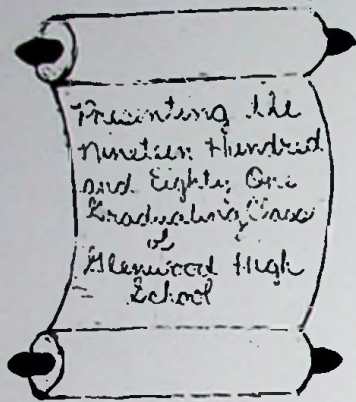 Presenting the
Nineteen Hundred
and Eighty One
Graduating Class
of
Glenwood High
School